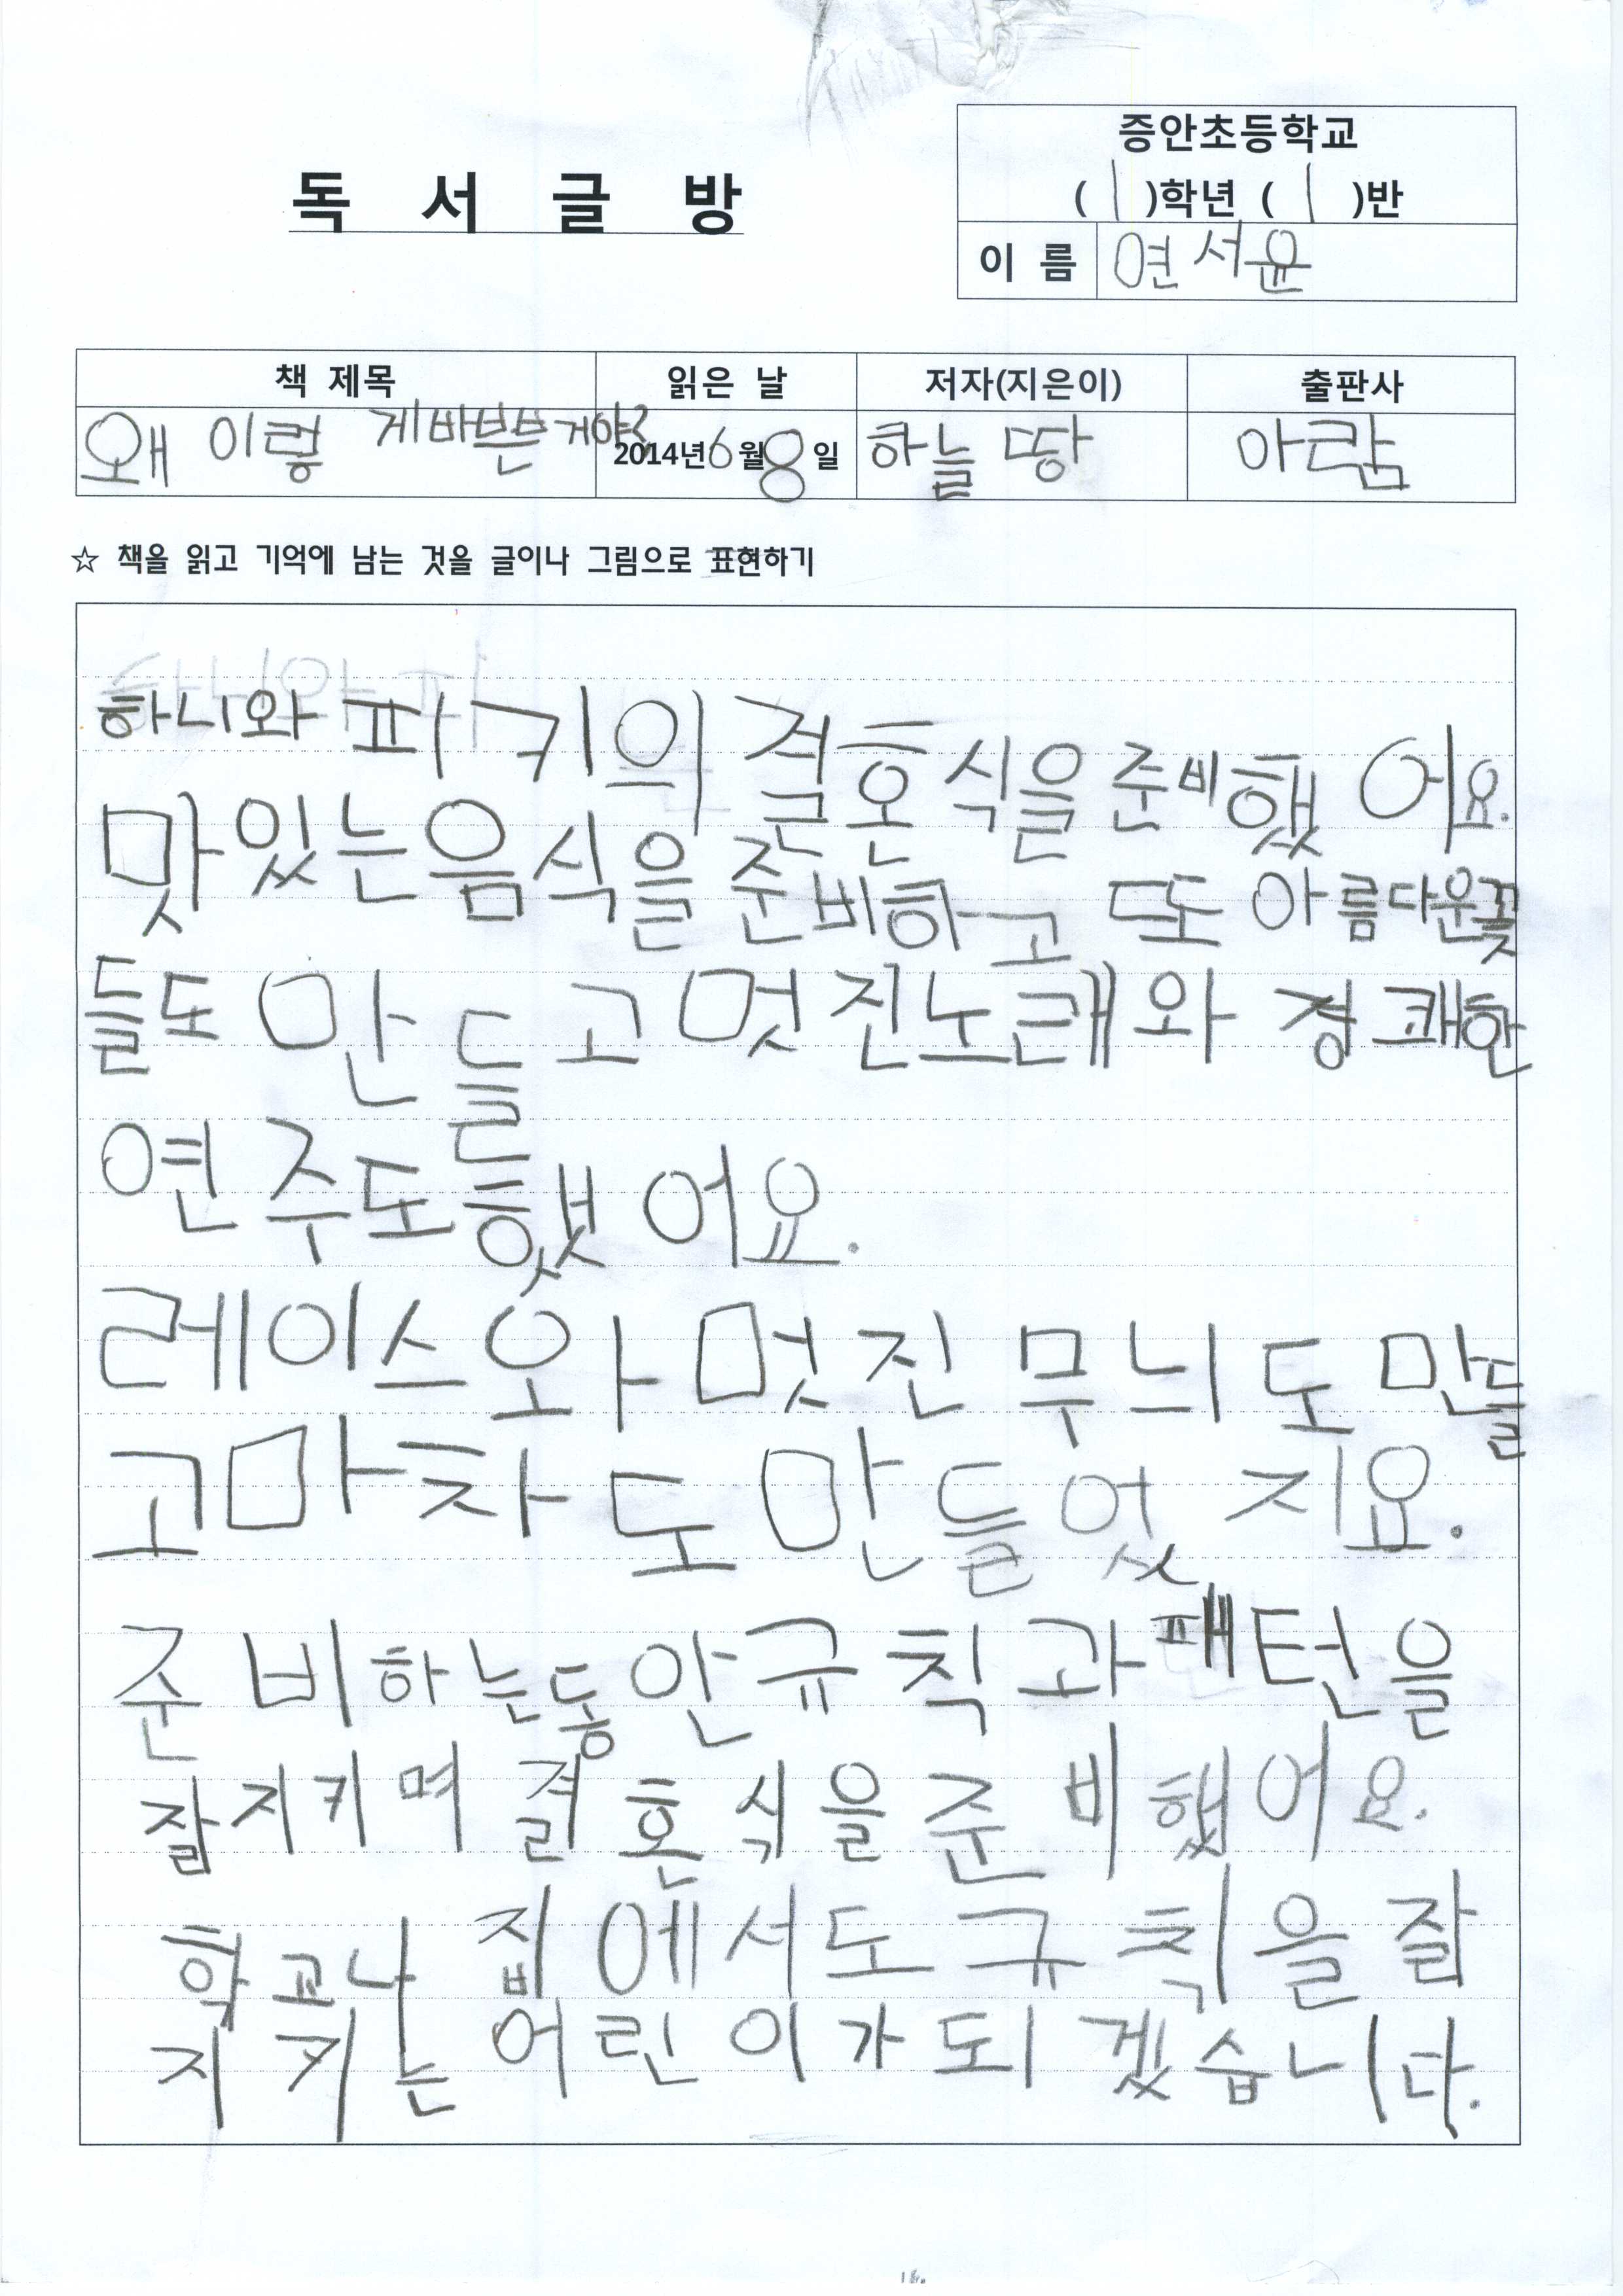 증안초등학교
독 서 글 방
( 1 )학년 ( 1 )반
이 름 연서윤
책 제목 읽은 날 저자(지은이) 출판사
왜 이렇게바쁜거야? 2014년 6월 8일 하늘땅 아람
☆ 책을 읽고 기억에 남는 것을 글이나 그림으로 표현하기
하니와 파키의 결혼식을 준비했어요.
맛있는음식을 준비하고 또 아름다운꽃
들도 만들고 멋진노래와 경쾌한
연주도했어요.
레이스와 멋진 무늬도 만들
고마차도 만들었지요.
준비하는동안규칙과패턴을
잘지키며 결혼식을 준비했어요.
학교나 집에서도 규칙을 잘
지키는 어린이가 되겠습니다.